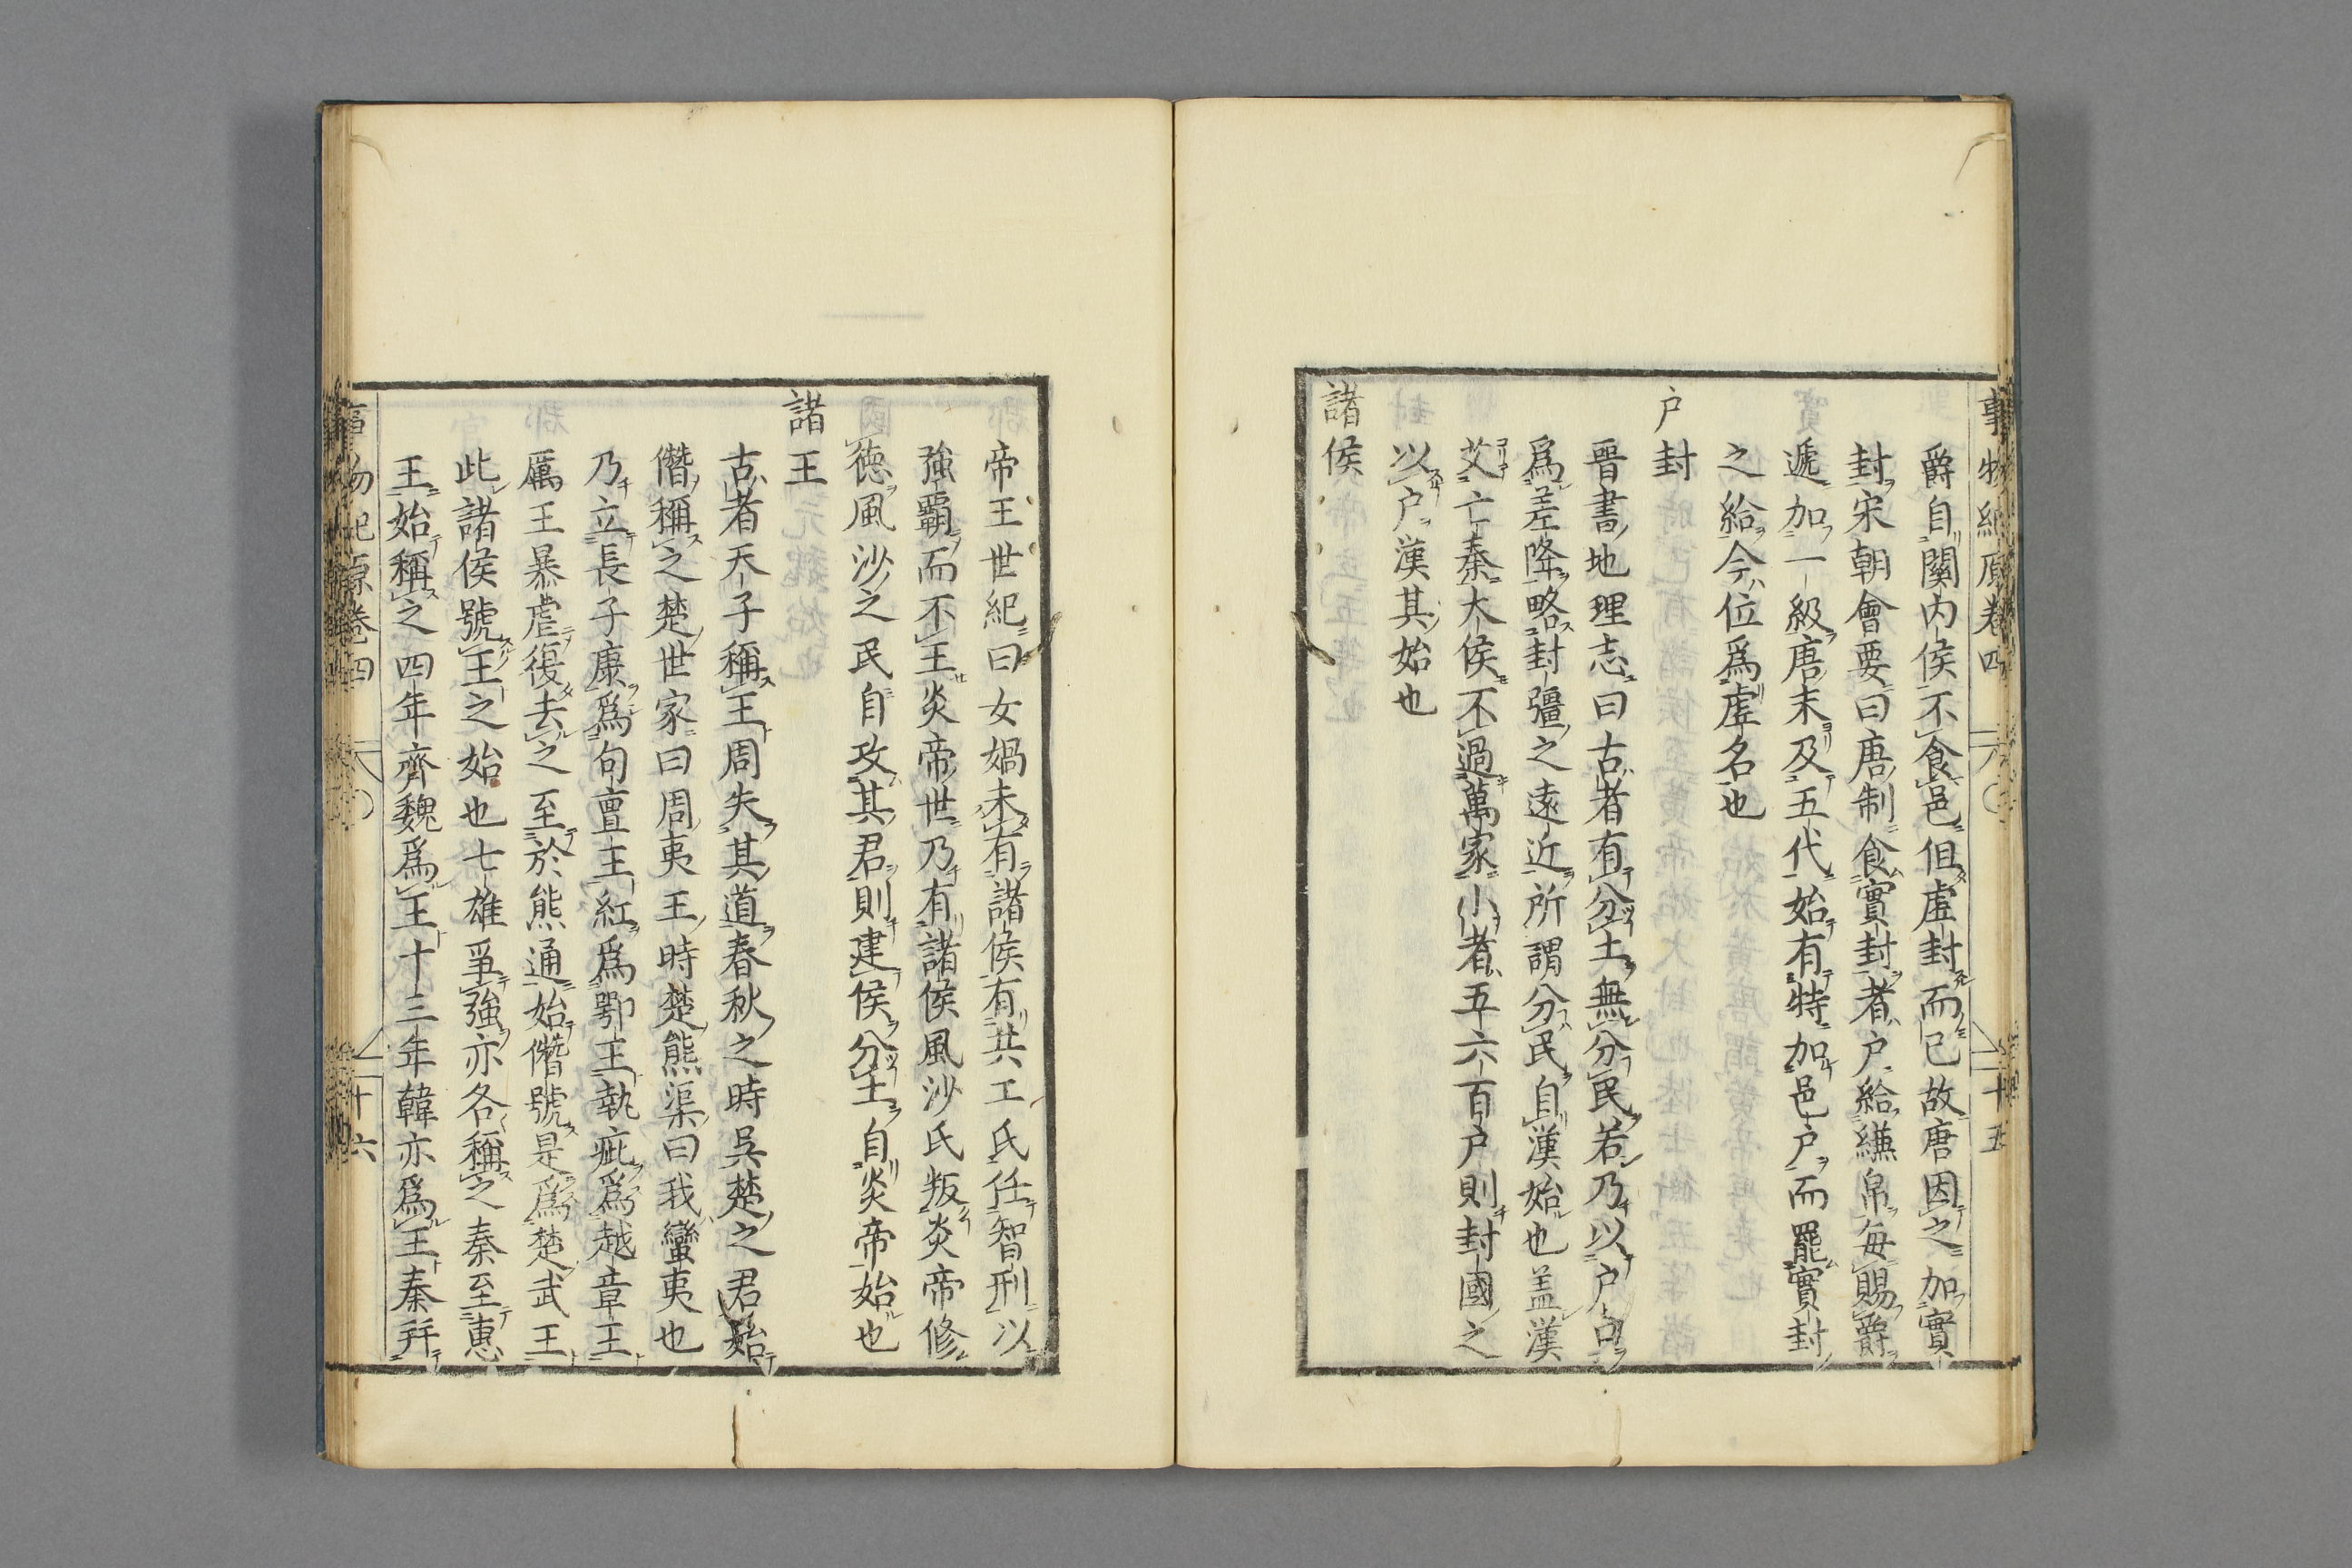 事物紀原卷四 十五
爵自關内侯不食邑但虛封而已故唐因之加實
封宋朝會要曰唐制食實封者戸給縑帛每賜爵
遞加一級唐末及五代始有特加邑戸而罷實封
之給今位爲虛名也
戸封
晉書地理志曰古者有分土無分民若乃以戸口
爲差降略封疆之遠近所謂分民自漢始也盖漢
艾亡秦大侯不過萬家小者五六百戸則封國之
以戸漢其始也
諸侯
帝王世紀曰女媧未有諸侯有共工氏任智刑以
強覇而不王炎帝世乃有諸侯風沙氏叛炎帝修
德風沙之民自攻其君則建侯分土自炎帝始也
諸王
古者天子稱王周失其道春秋之時吳楚之君始
僭稱之楚世家曰周夷王時楚熊渠曰我蠻夷也
乃立長子康爲句亶王紅爲鄂王執疵爲越章王
厲王暴虐復去之至於熊通始僭號是爲楚武王
此諸侯號王之始也七雄爭強亦各稱之秦至惠
王始稱之四年齊魏爲王十三年韓亦爲王秦并
事物紀原卷四 十六